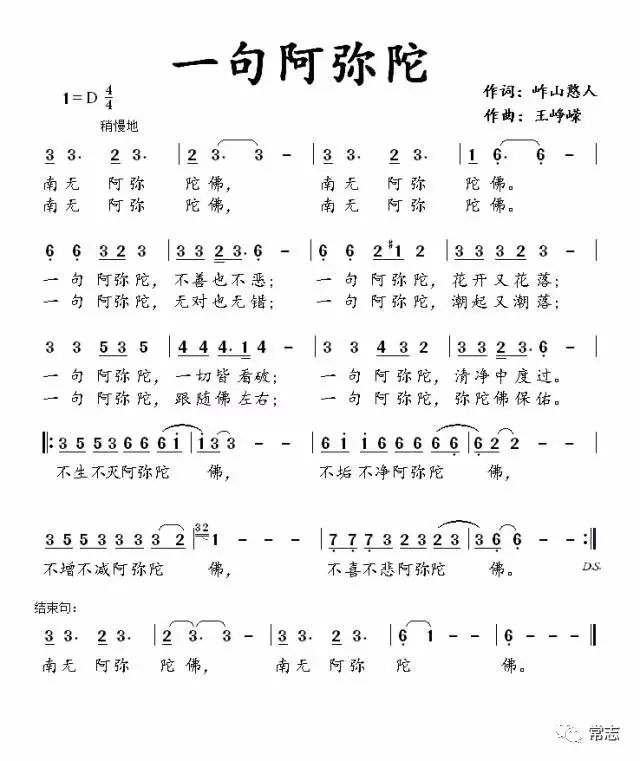 一句阿弥陀
1=D 4/4
作词：岞山憨人
作曲：王峥嵘
稍慢地
3 3· 2 3· | 2 3· 3 - | 3 3· 2 3· | 1 6· 6 - |
南无 阿弥 陀佛， 南无 阿弥 陀佛。
南无 阿弥 陀佛， 南无 阿弥 陀佛。
6 6 3 2 3 | 3 3 2 3· 6 - | 6 6 2 #1 2 | 3 3 2 3· 6 - |
一句 阿弥陀，不善也不恶； 一句 阿弥陀，花开又花落；
一句 阿弥陀，无对也无错； 一句 阿弥陀，潮起又潮落；
3 3 5 3 5 | 4 4 4· 1 4 - | 3 3 4 3 2 | 3 3 2 3· 6 - |
一句 阿弥陀，一切皆看破； 一句 阿弥陀，清净中度过。
一句 阿弥陀，跟随佛左右； 一句 阿弥陀，弥陀佛保佑。
‖: 3 5 5 3 6 6 6 i | i 3 3 - - | 6 i i 6 6 6 6 6 | 6 2 2 - - |
不生不灭阿弥陀 佛， 不垢不净阿弥陀 佛，
3 5 5 3 3 3 3 2 | 32 1 - - - | 7 7 7 3 2 3 2 3 | 3 6 6 - - :‖
不增不减阿弥陀 佛， 不喜不悲阿弥陀 佛。 D.S.
结束句：
3 3· 2 3· | 2 3· 3 - | 3 3· 2 3· | 6 1 - - | 6 - - - ‖
南无 阿弥 陀佛， 南无 阿弥 陀 佛。
常志